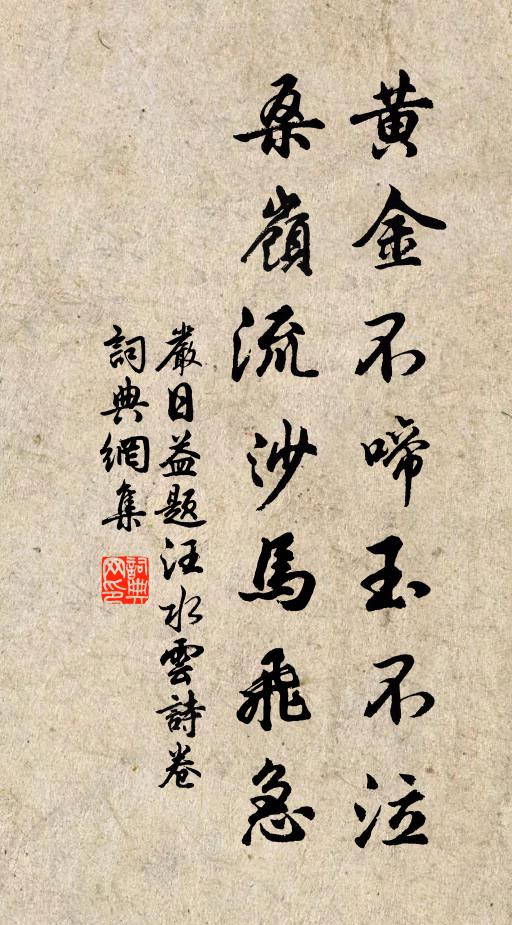 黄金不啼玉不泣
桑嶺流沙馬飛急
嚴日益題汪水雲詩卷
詞典網集
詞典网印